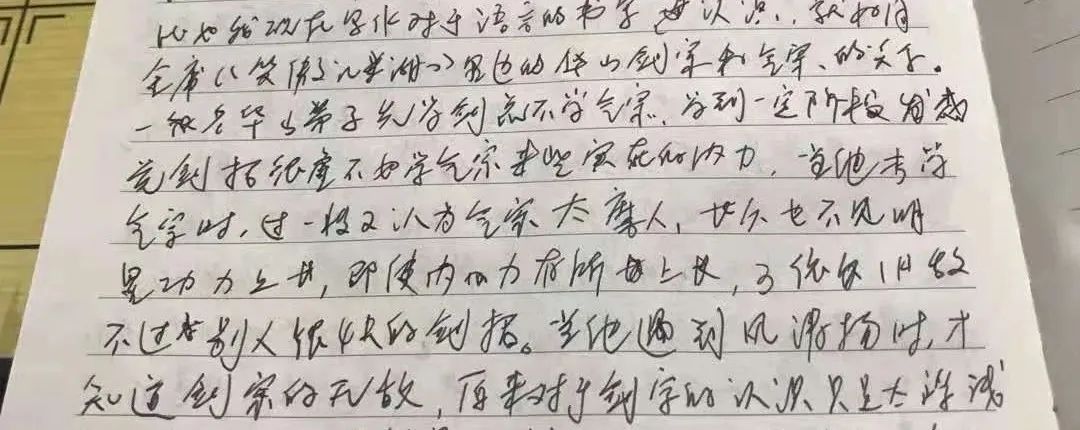 我也发现在学化对于语言的书字 认识,就如同
金庸《笑傲江湖》里边的华山剑宗和气宗、的关系。
一般名华山弟子先学剑宗不学气宗,学到一定阶段后感
觉剑招很虚不如学气宗来些实在的内力,当他去学
气宗时,过一段又认为气宗太磨人,长久也不见明
显功力上长,即使内功力有所上长,可依然旧敌
不过别人很快的剑招。当他遇到风清扬时,才
知道剑宗的无敌,原来对于剑宗的认识只是太浅